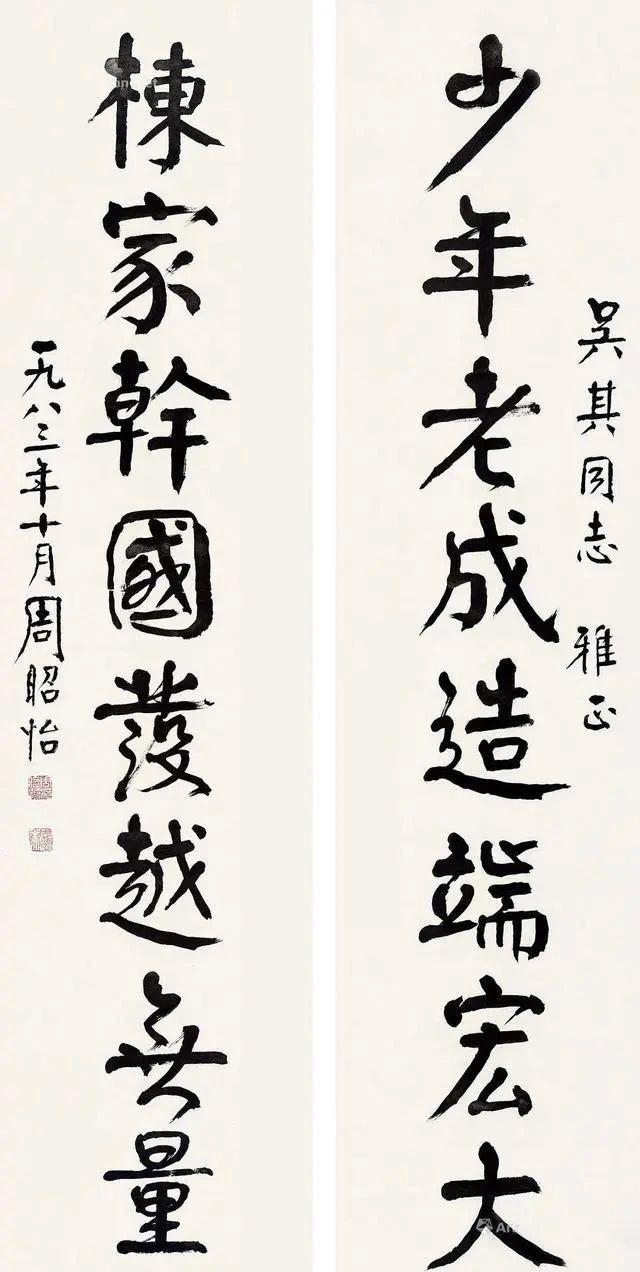 吴其同志 雅正
少年老成造端宏大
棟家幹國發越無量
一九八三年十月周昭怡